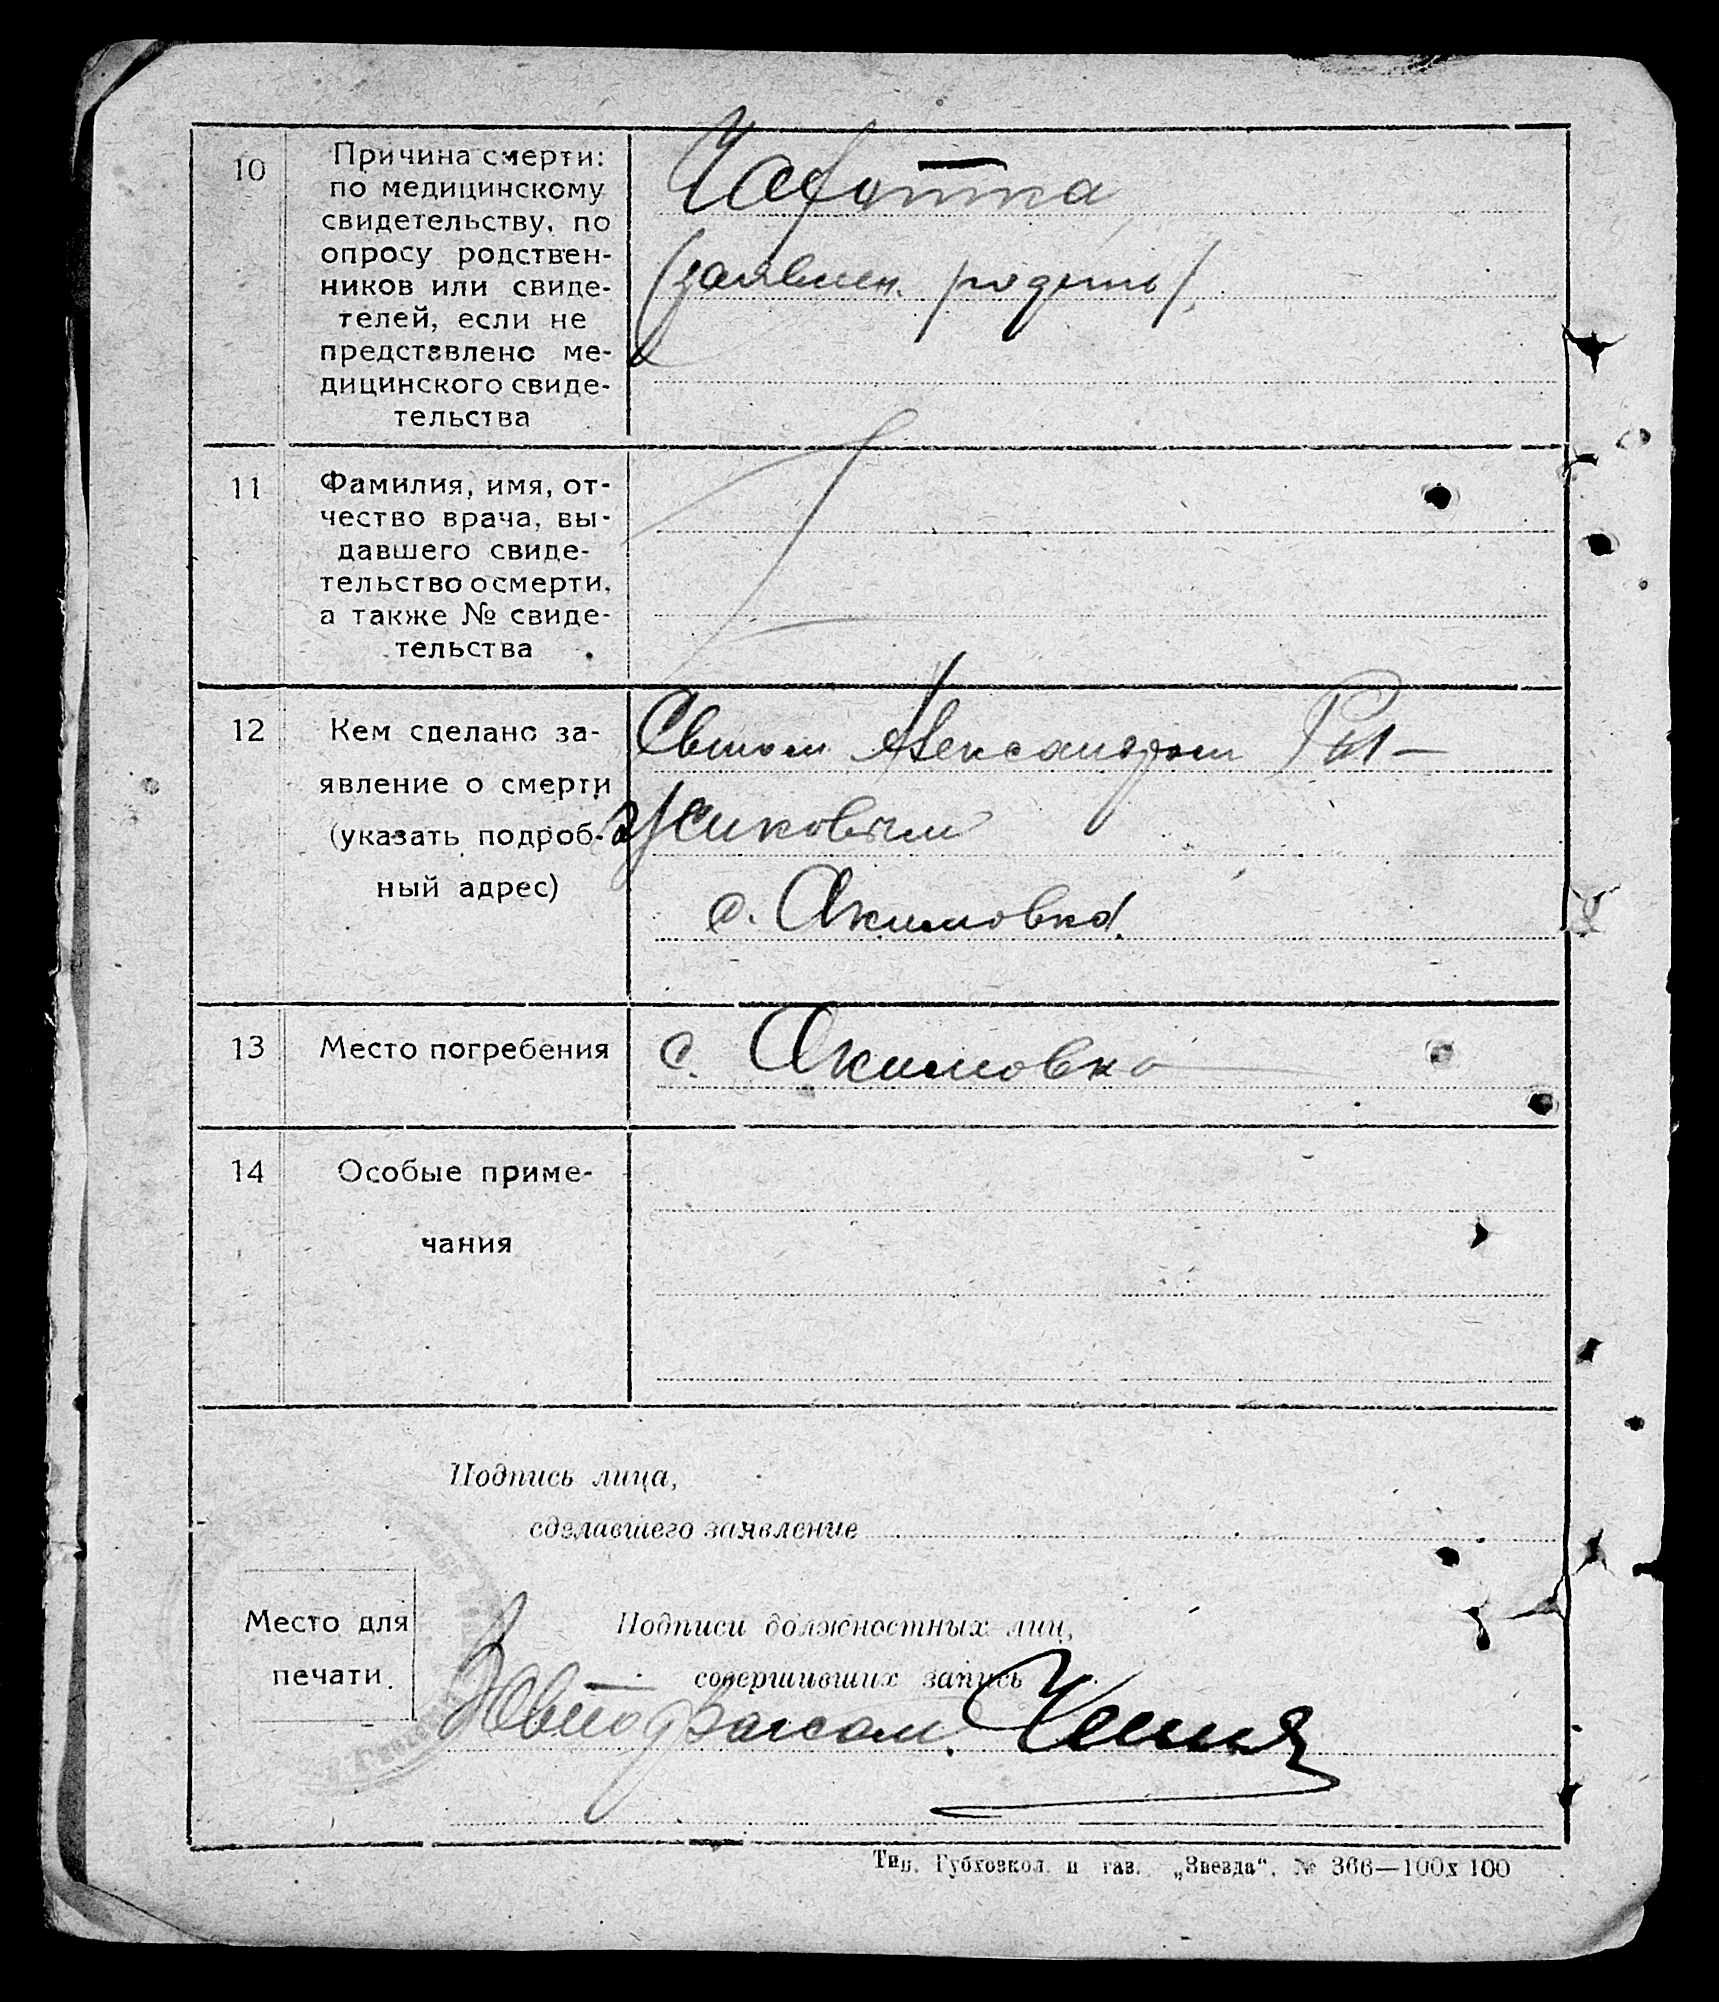 10
Причина смерти:
по медицинскому
свидетельству, по
опросу родствен-
ников или свиде-
телей, если не
представлено ме-
дицинского свиде-
тельства
Чахотка
(заявлен. родств).
11
Фамилия, имя, от-
чество врача, вы-
давшего свиде-
тельство о смерти,
а также № свиде-
тельства
12
Кем сделано за-
явление о смерти
(указать подроб-
ный адрес)
Александром Ры-
жиковым
с. Акимовка.
13
Место погребения
с. Акимовка
14
Особые приме-
чания
Подпись лица,
сделавшего заявление
Место для
печати.
Подписи должностных лиц,
совершивших запись
Тип. Губхозкол. и газ. „Звезда“. № 366—100х100